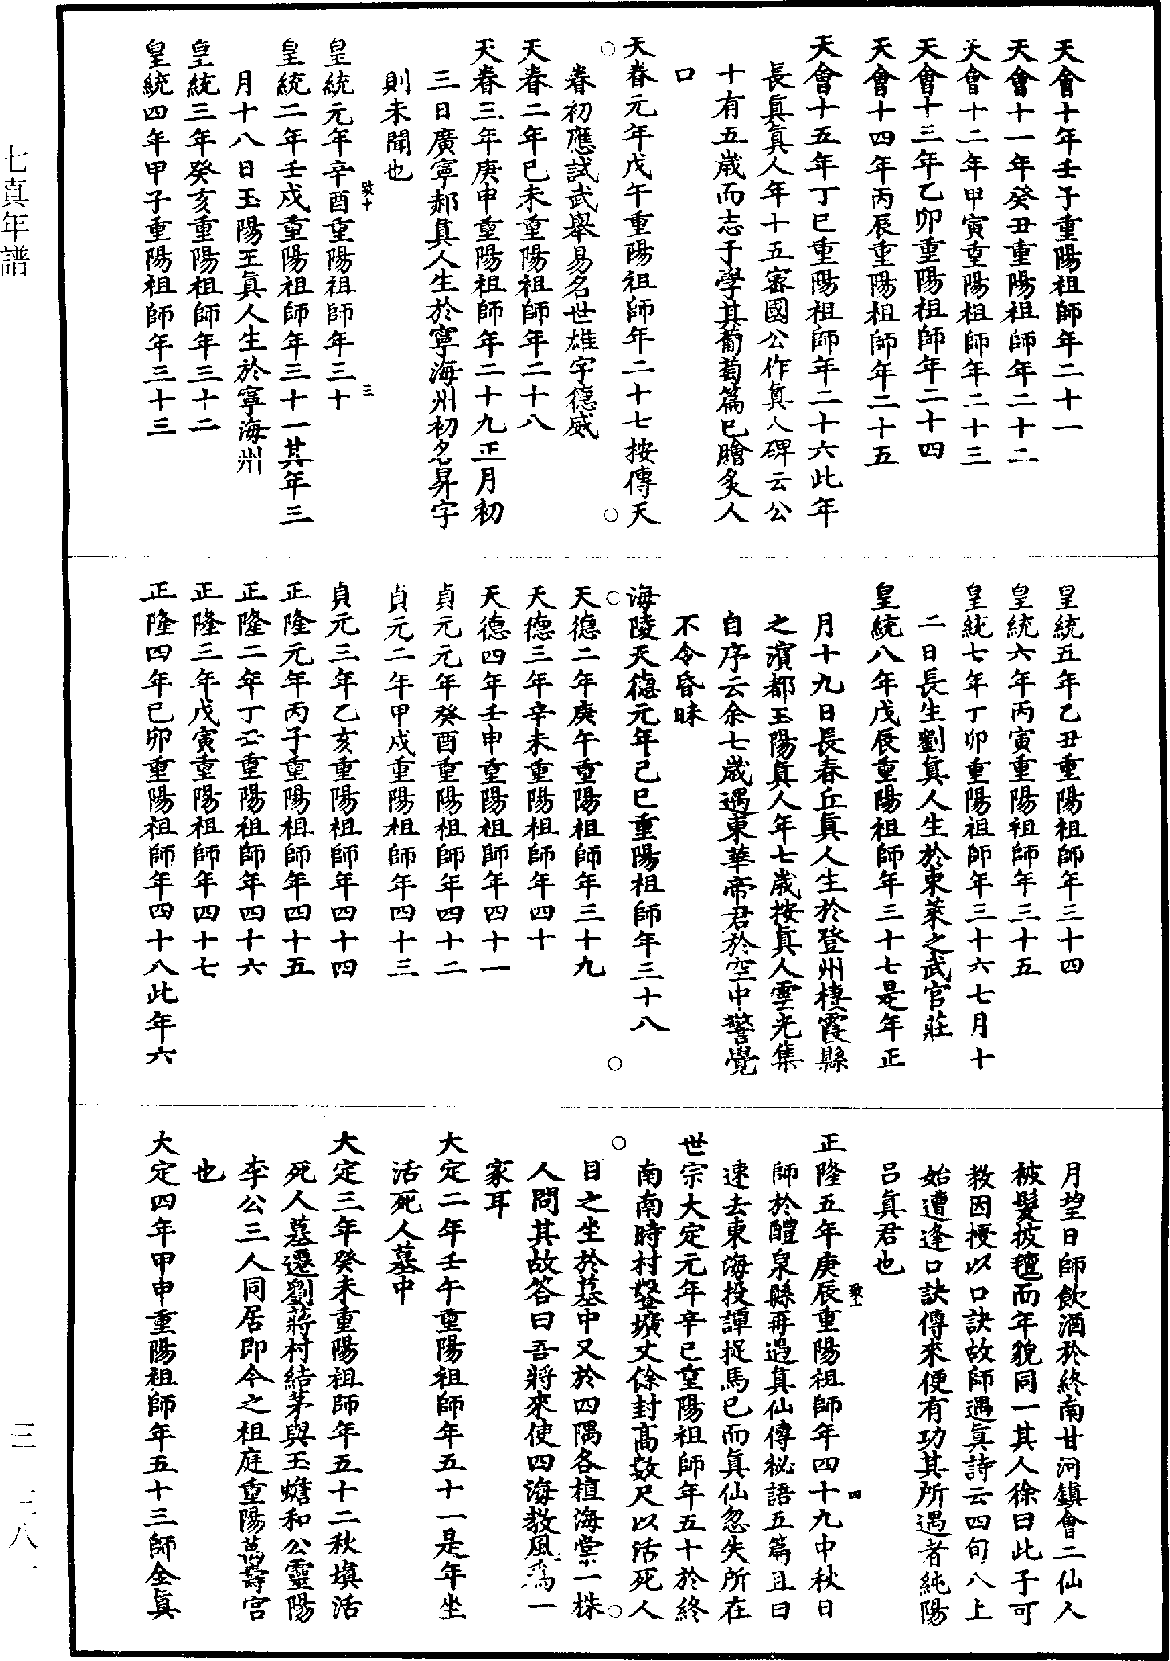 天會十年壬子重陽祖師年二十一
天會十一年癸丑重陽祖師年二十二
天會十二年甲寅重陽祖師年二十三
天會十三年乙卯重陽祖師年二十四
天會十四年丙辰重陽祖師年二十五
天會十五年丁巳重陽祖師年二十六此年
長真真人年十五密國公作真人碑云公
十有五歲而志于學其葡萄篇已膾炙人
口
天眷元年戊午重陽祖師年二十七按傳天
眷初應試武舉易名世雄字德威
天眷二年已未重陽祖師年二十八
天眷三年庚申重陽祖師年二十九正月初
三日廣寧郝真人生於寧海州初名昇字
則未聞也
皇統元年辛酉重陽祖師年三十
致十
三
皇統二年壬戌重陽祖師年三十一其年三
月十八日玉陽王真人生於寧海州
皇統三年癸亥重陽祖師年三十二
皇統四年甲子重陽祖師年三十三
皇統五年乙丑重陽祖師年三十四
皇統六年丙寅重陽祖師年三十五
皇統七年丁卯重陽祖師年三十六七月十
二日長生劉真人生於東萊之武官莊
皇統八年戊辰重陽祖師年三十七是年正
月十九日長春丘真人生於登州棲霞縣
之濱都玉陽真人年七歲按真人雲光集
自序云余七歲遇東華帝君於空中警覺
不令昏昧
海陵天德元年己巳重陽祖師年三十八
天德二年庚午重陽祖師年三十九
天德三年辛未重陽祖師年四十
天德四年壬申重陽祖師年四十一
貞元元年癸酉重陽祖師年四十二
貞元二年甲戌重陽祖師年四十三
貞元三年乙亥重陽祖師年四十四
正隆元年丙子重陽祖師年四十五
正隆二年丁丑重陽祖師年四十六
正隆三年戊寅重陽祖師年四十七
正隆四年已卯重陽祖師年四十八此年六
月望日師飲酒於終南甘河鎮會二仙人
被髮披氊而年貌同一其人徐曰此子可
教因授以口訣故師遇真詩云四旬八上
始遭逢口訣傳來便有功其所遇者純陽
呂真君也
正隆五年庚辰重陽祖師年四十九中秋日
致十
四
師於醴泉縣再遇真仙傳秘語五篇且曰
速去東海投譚捉馬已而真仙忽失所在
世宗大定元年辛巳重陽祖師年五十於終
南南時村鑿壙丈餘封高數尺以活死人
目之坐於墓中又於四隅各植海棠一株
人問其故答曰吾將來使四海教風爲一
家耳
大定二年壬午重陽祖師年五十一是年坐
活死人墓中
大定三年癸未重陽祖師年五十二秋填活
死人墓遷劉蔣村結茅與玉蟾和公靈陽
李公三人同居即今之祖庭重陽萬壽宮
也
大定四年甲申重陽祖師年五十三師全真
七真年譜